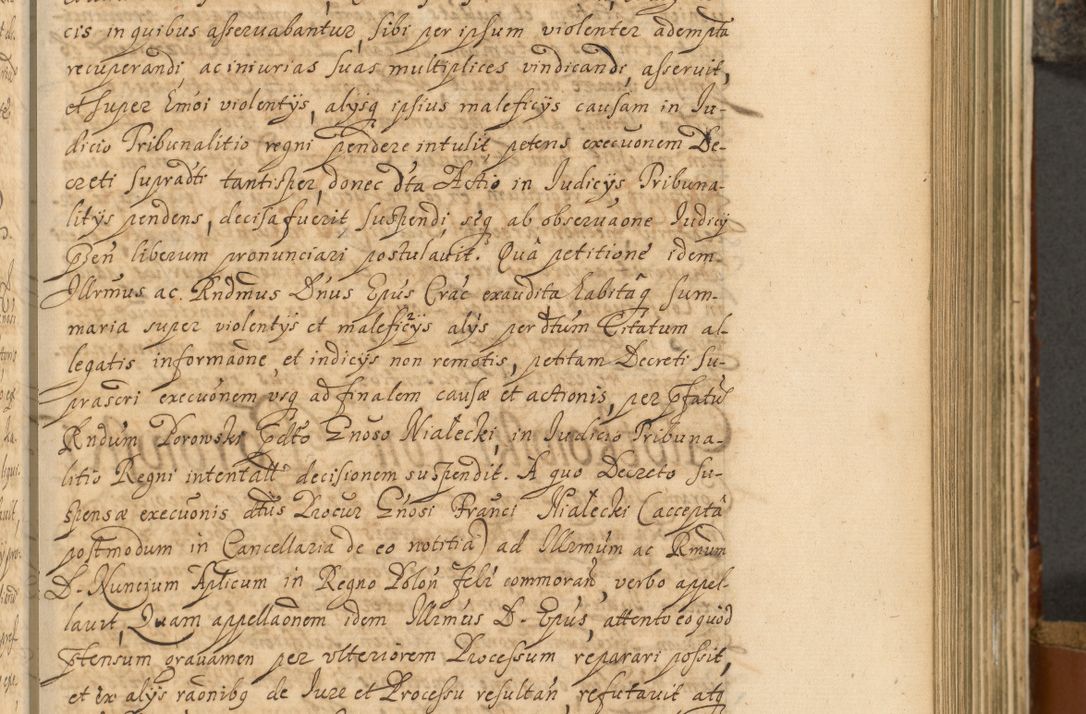 cis in quibus asseruabantur, sibi per ipsum violenter adempta
recuperandi, ac iniurias suas multiplices vindicandi, asseruit,
et super Emoi violentijs, alijsq ipsius maleficijs causam in Iu-
dicio Tribunalitio regni pendere intulit, petens execuonem De-
creti supradti tantisper, donec dta Actio in Iudicijs Tribuna-
litijs pendens, decisa fuerit, suspendi, seq ab obseruaone Iudicij
pñ liberum pronunciari postulauit. Quâ petitione idem
Illrmus ac Rndmus Dnus Epus Crac exaudita habitaq sum-
maria super violentijs et maleficijs alijs per dtum Citatum al-
legatis informaone, et indicijs non remotis, petitam Decreti su-
prascri execuonem vsq ad finalem causæ et actionis, per pfatũ
Rndum Porowski pdto Gnoso Nialecki, in Iudicio Tribuna-
litio Regni intentatt decisionem suspendit. A quo Decreto su-
spensæ execuonis dtus Procur Gnosi Franci Nialecki (acceptâ
postmodum in Cancellaria de eo notitia) ad Illrmum ac Rmum
D. Nuncium Aplicum in Regno Polon feli commoran, verbo appel-
lauit, Quam appellaonem idem Illrmus D. Epus, attento eo quòd
ptensum grauamen per vlteriorem Processum reparari possit,
et ex alijs raonibq de Iure et Processu resultan, refutauit atq